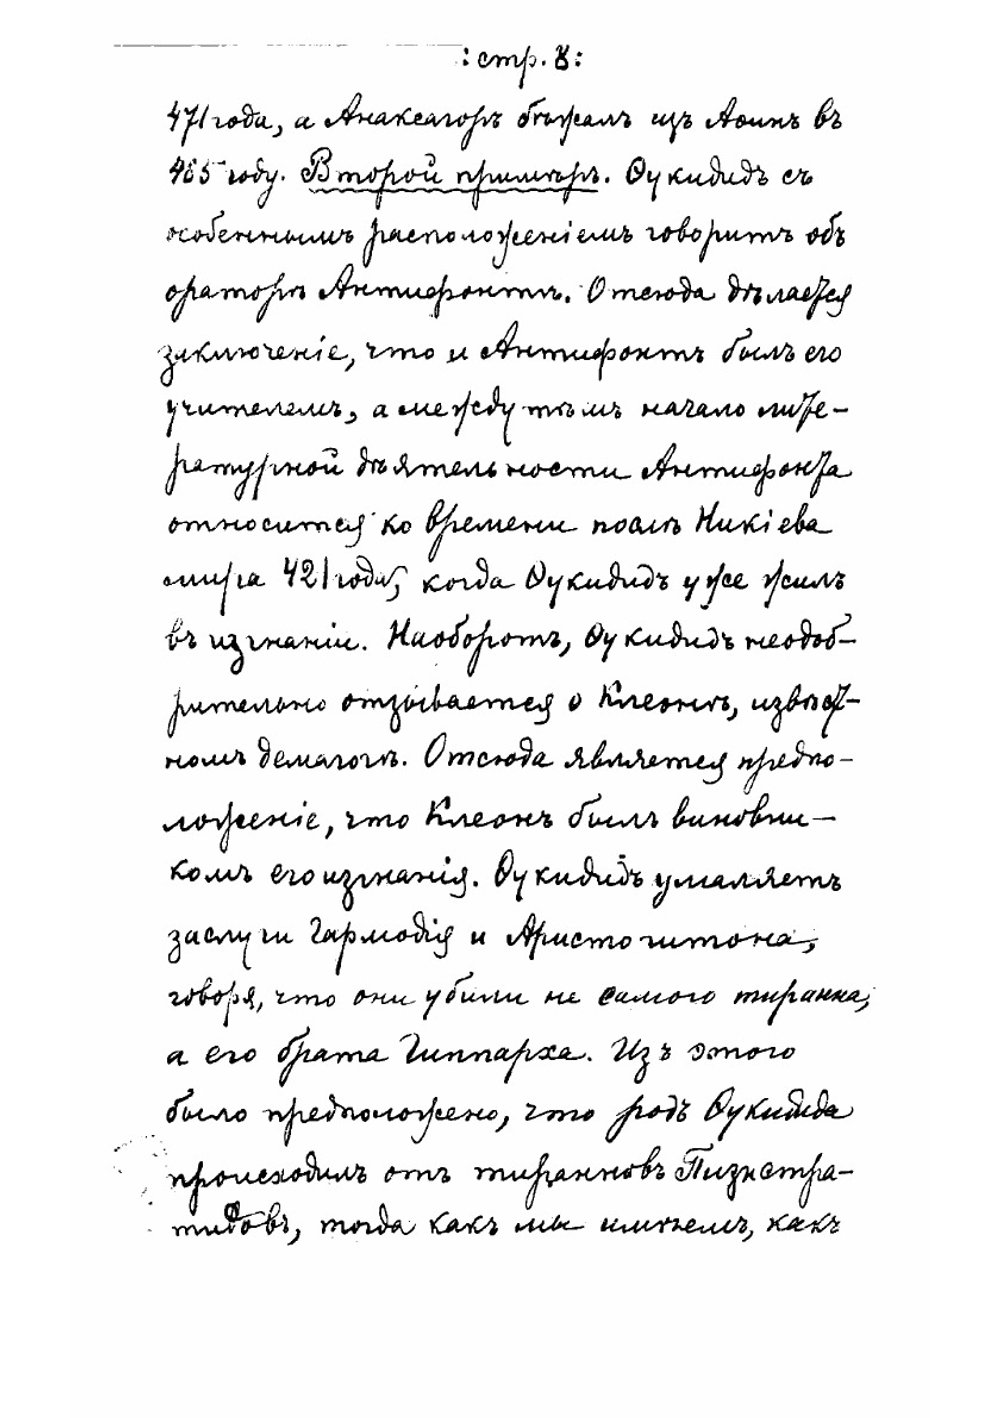 : стр. 8:
471 года, а Анаксагоръ бѣжалъ изъ Аѳинъ въ
465 году. Второй примѣръ. Ѳукидидъ съ
особеннымъ расположеніемъ говоритъ объ
ораторѣ Антифонтѣ. Отсюда дѣлается
заключеніе, что и Антифонтъ былъ его
учителемъ, а между тѣмъ начало лите-
ратурной дѣятельности Антифонта
относится ко времени послѣ Никіева
мира 421 года, когда Ѳукидидъ уже жилъ
въ изгнаніи. Наоборотъ, Ѳукидидъ неодоб-
рительно отзывается о Клеонѣ, извѣст-
номъ демагогѣ. Отсюда является предпо-
ложеніе, что Клеонъ былъ виновни-
комъ его изгнанія. Ѳукидидъ умаляетъ
заслуги Гармодія и Аристогитона,
говоря, что они убили не самого тиранна,
а его брата Гиппарха. Изъ этого
было предположено, что родъ Ѳукидида
происходилъ отъ тиранновъ Пизистра-
тидовъ, тогда какъ мы имѣемъ, какъ